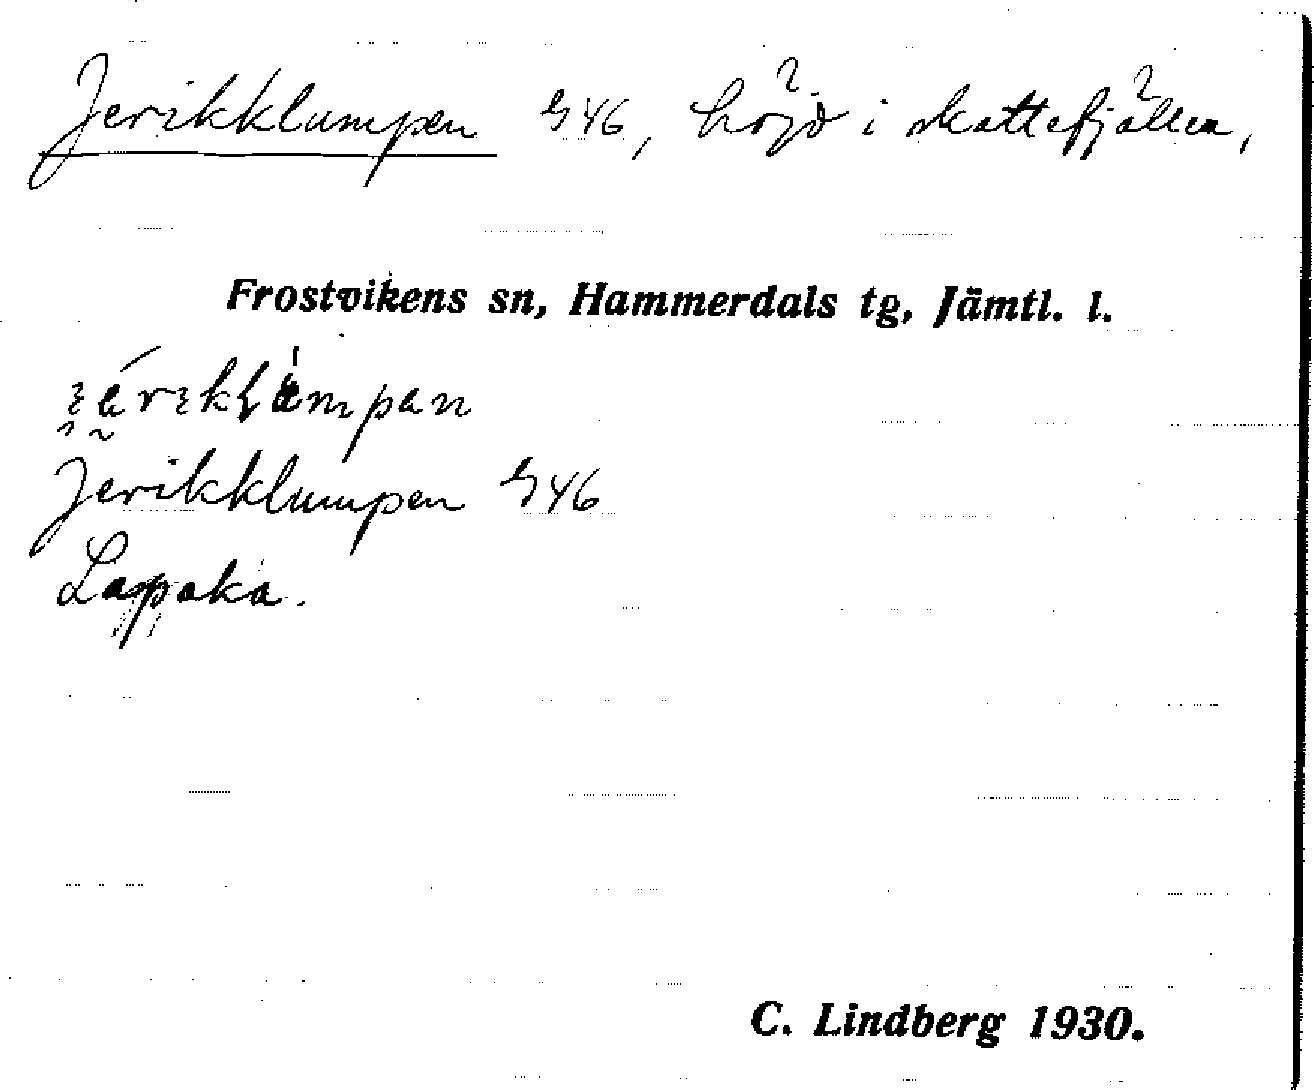 Jerikklumpen G46, höjd i skattefjällen,
Frostvikens sn, Hammerdals tg, Jämtl. l.
Jerikklumpen G46
Lappska.
C. Lindberg 1930.